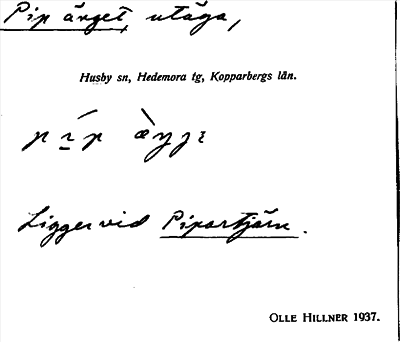 Pip änget, utäga,
Husby sn, Hedemora tg, Kopparbergs län.
Ligger vid Pipartjärn.
OLLE HILLNER 1937.